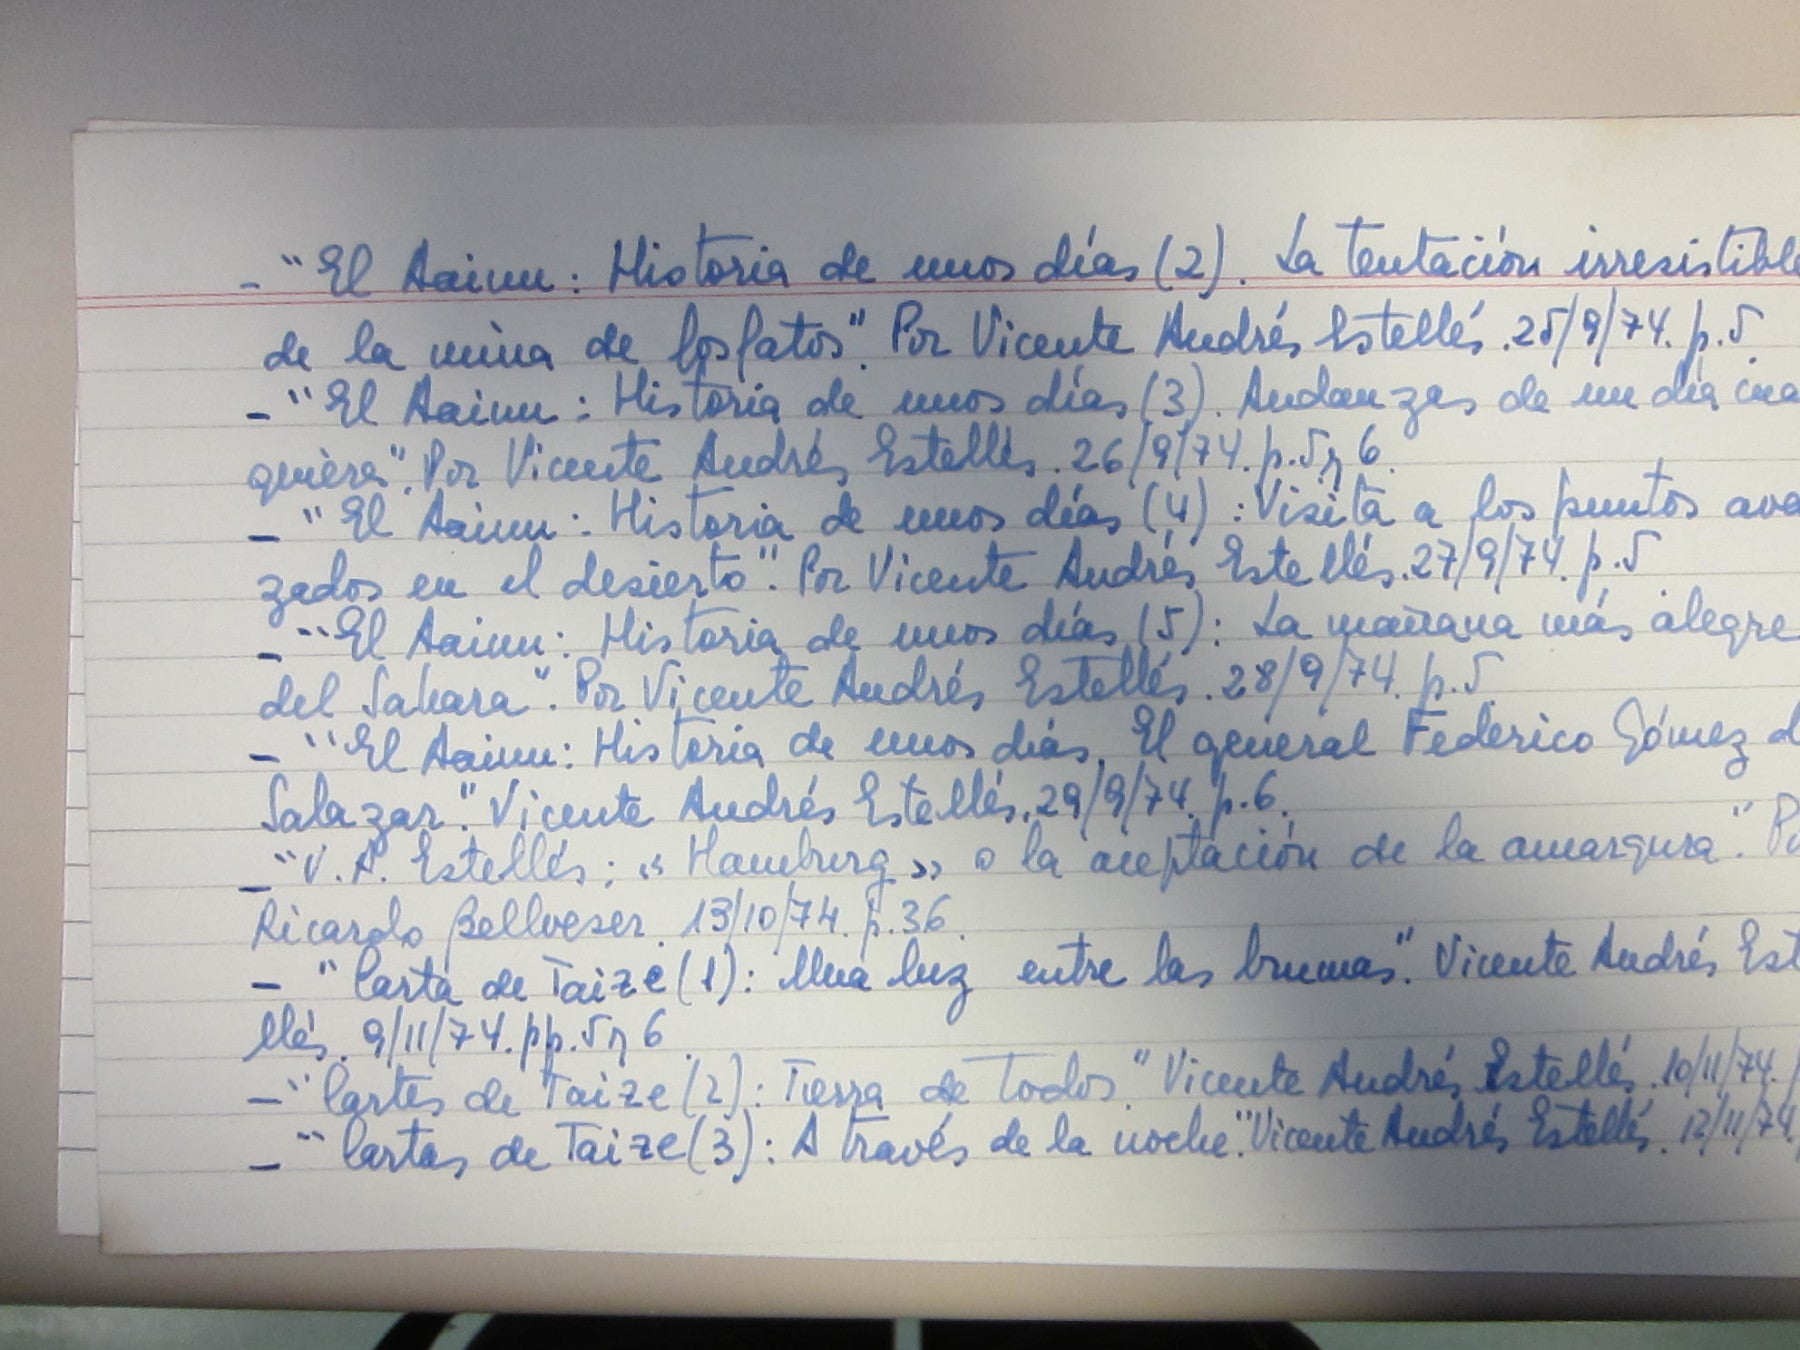 - "El Aaiun: Historia de unos días (2). La tentación irresistible
de la mina de fosfatos". Por Vicente Andrés Estellés. 25/9/74. p.5.
- "El Aaiun: Historia de unos días (3). Andanzas de un día cua
quiera". Por Vicente Andrés Estellés. 26/9/74. p.5 y 6.
- "El Aaiun: Historia de unos días (4): Visita a los puntos ava
zados en el desierto". Por Vicente Andrés Estellés. 27/9/74. p.5
- "El Aaiun: Historia de unos días (5): La mañana más alegre
del Sahara". Por Vicente Andrés Estellés. 28/9/74. p.5
- "El Aaiun: Historia de unos días. El general Federico Gómez d
Salazar". Vicente Andrés Estellés. 29/9/74. p.6.
- "V.A. Estellés: «Hamburg» o la aceptación de la amargura". Po
Ricardo Bellveser. 13/10/74. p.36.
- "Carta de Taize (1): Una luz entre las brumas". Vicente Andrés Est
llés. 9/11/74. pp.5 y 6.
- "Cartes de Taize (2): Tierra de Todos." Vicente Andrés Estellés. 10/11/74.
- "Cartas de Taize (3): A través de la noche". Vicente Andrés Estellés. 12/11/74.